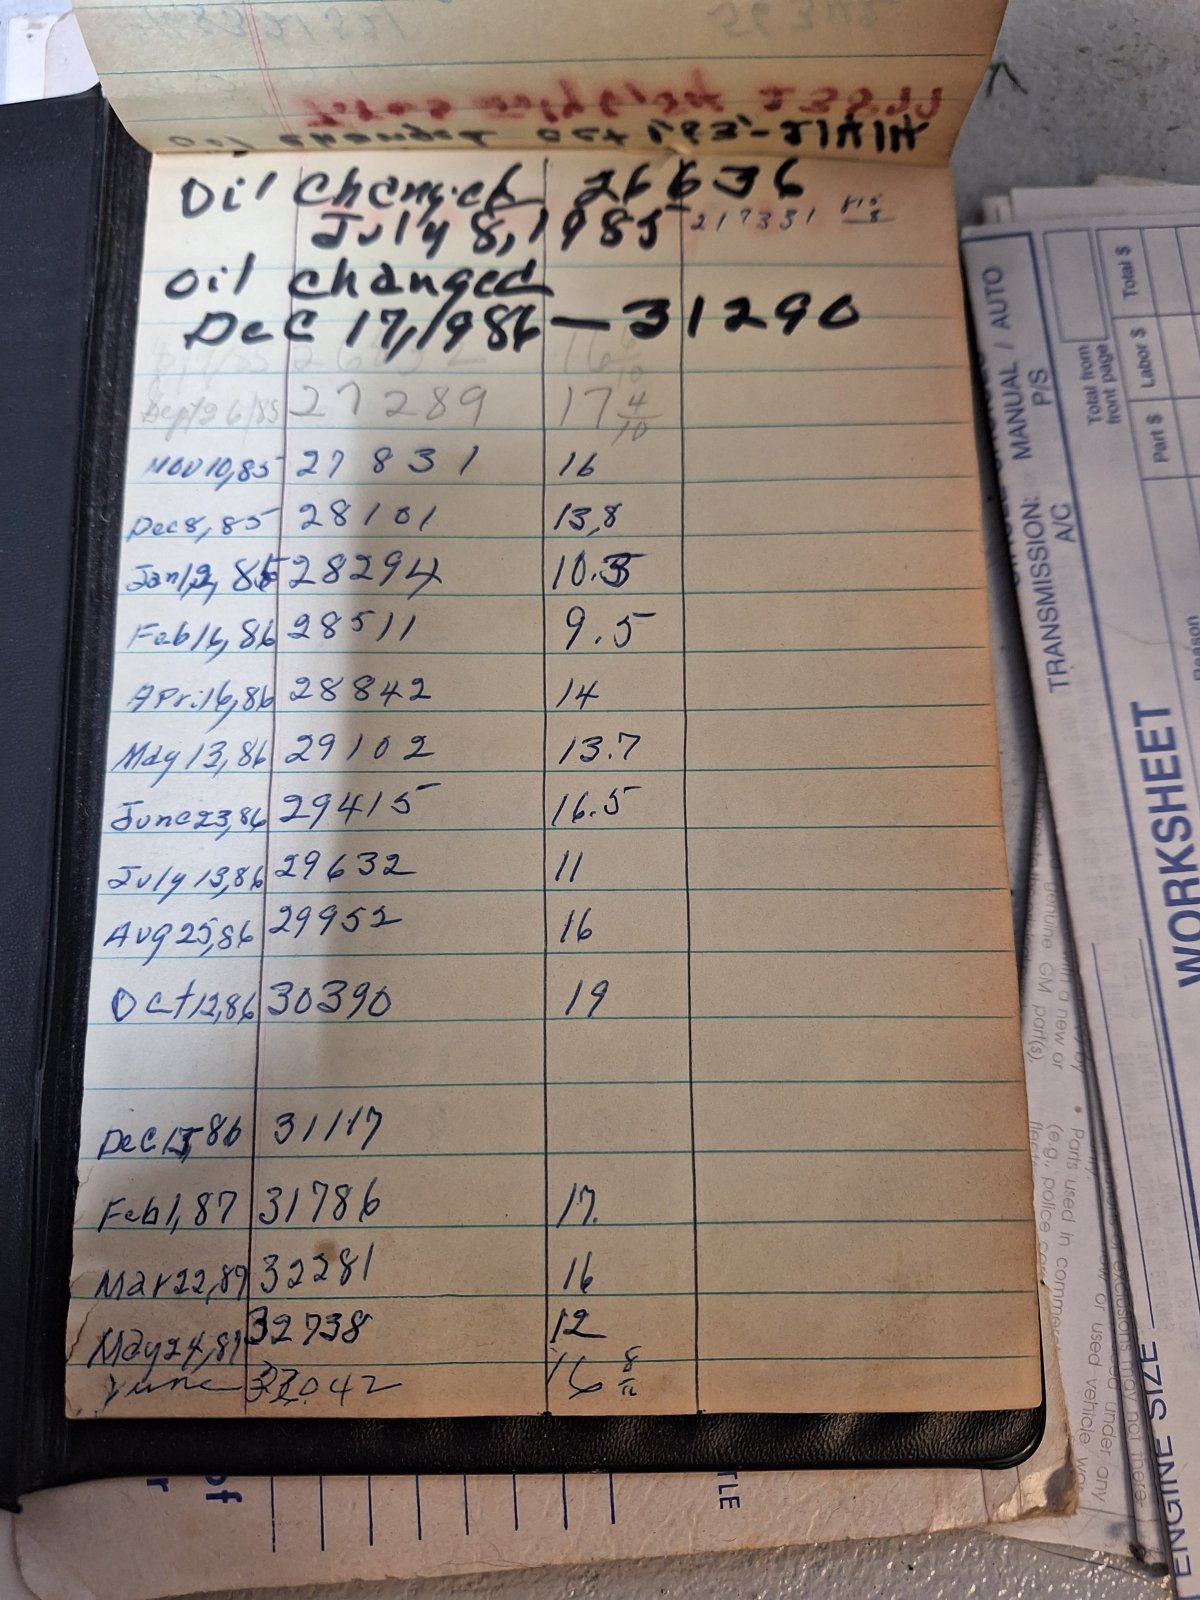 Oil changed Oct 1983 - 21414
Oil Changed 26636
July 8, 1985 217331
Oil changed
Dec 17, 1986 — 31290
26832 16
Sept 26/85 27289 17 4/10
Nov 10, 85 27831 16
Dec 8, 85 28101 13,8
Jan 12, 28294 10.5
Feb 16, 86 28511 9.5
Apr. 16, 86 28842 14
May 13, 86 29102 13.7
June 23, 86 29415 16.5
July 13, 86 29632 11
Aug 25, 86 29952 16
Oct 12, 86 30390 19
Dec 15, 86 31117
Feb 1, 87 31786 17.
Mar 22, 87 32281 16
May 24, 87 32738 12
June 33042 16
MANUAL / AUTO
TRANSMISSION:
P/S
A/C
Total from
front page
Part $ Labor $ Total $
Reason
WORKSHEET
ENGINE SIZE
genuine GM part(s),
• Parts used in
(e.g., police
or used vehicle
of
r
TLE